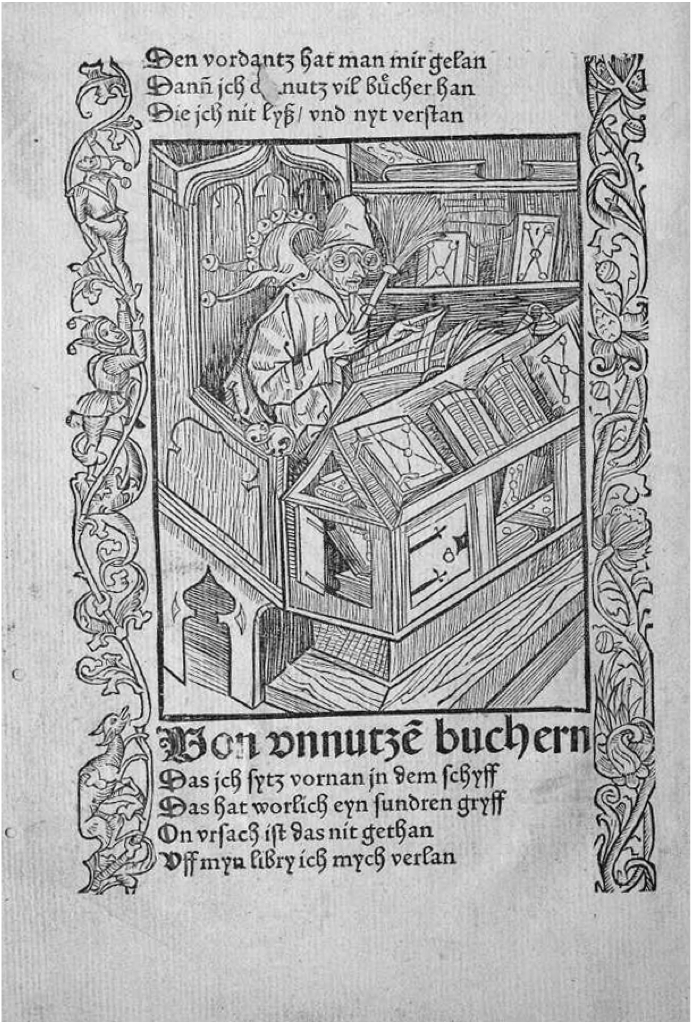 Den vordantz hat man mir gelan
Dann̄ jch nutz vil buͤcher han
Die jch nit lyß / vnd nyt verstan
Von vnnutzē buchern
Das jch sytz vornan jn dem schyff
Das hat worlich eyn sundren gryff
On vrsach ist das nit gethan
Vff myn libry ich mych verlan